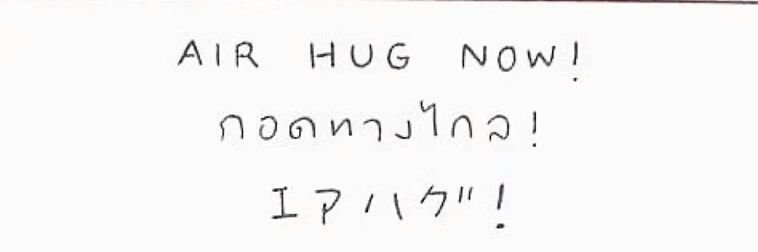 AIR HUG NOW!
กอดทางไกล!
エアハグ!